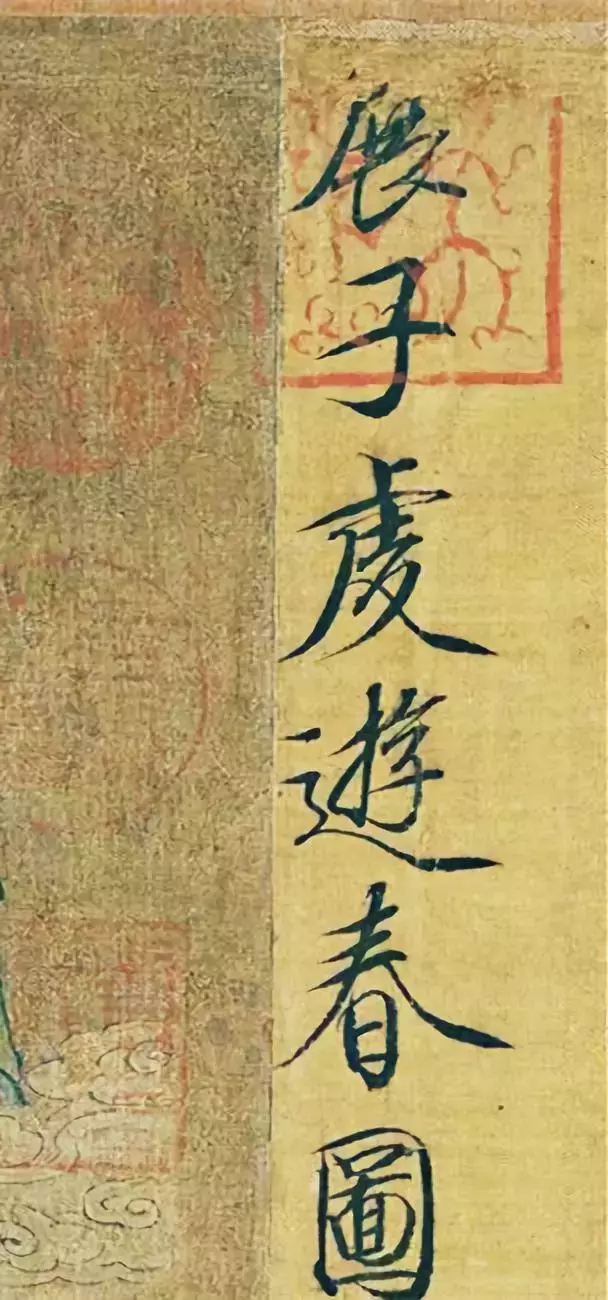 展子虔遊春圖